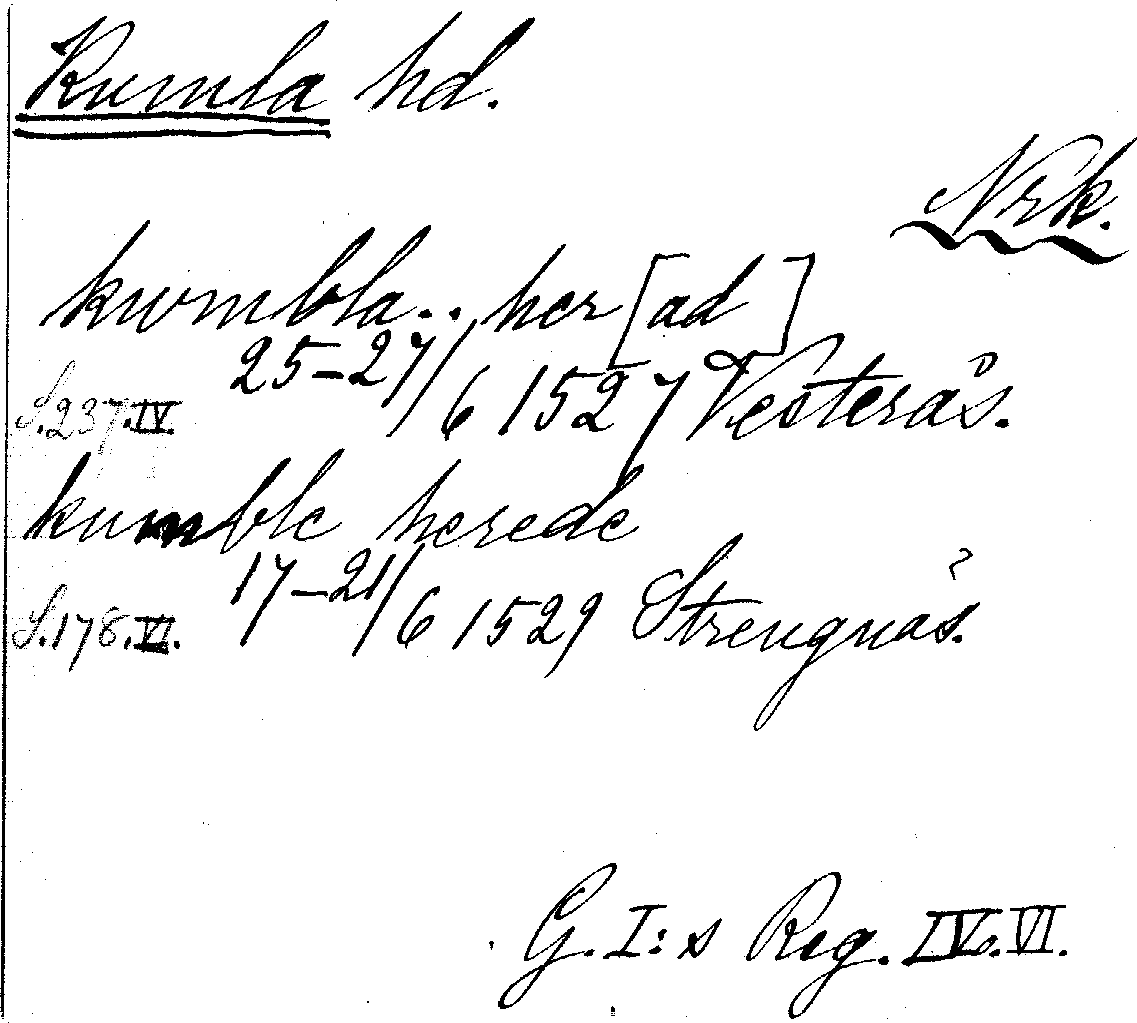 Kumla hd.
Nrk.
kwmbla.. her[ad]
S.237.IV. 25-27/6 1527 Vesterås.
kumble herede
S.178.VI. 17-21/6 1529 Strengnäs.
G. I:s Reg. IV. VI.